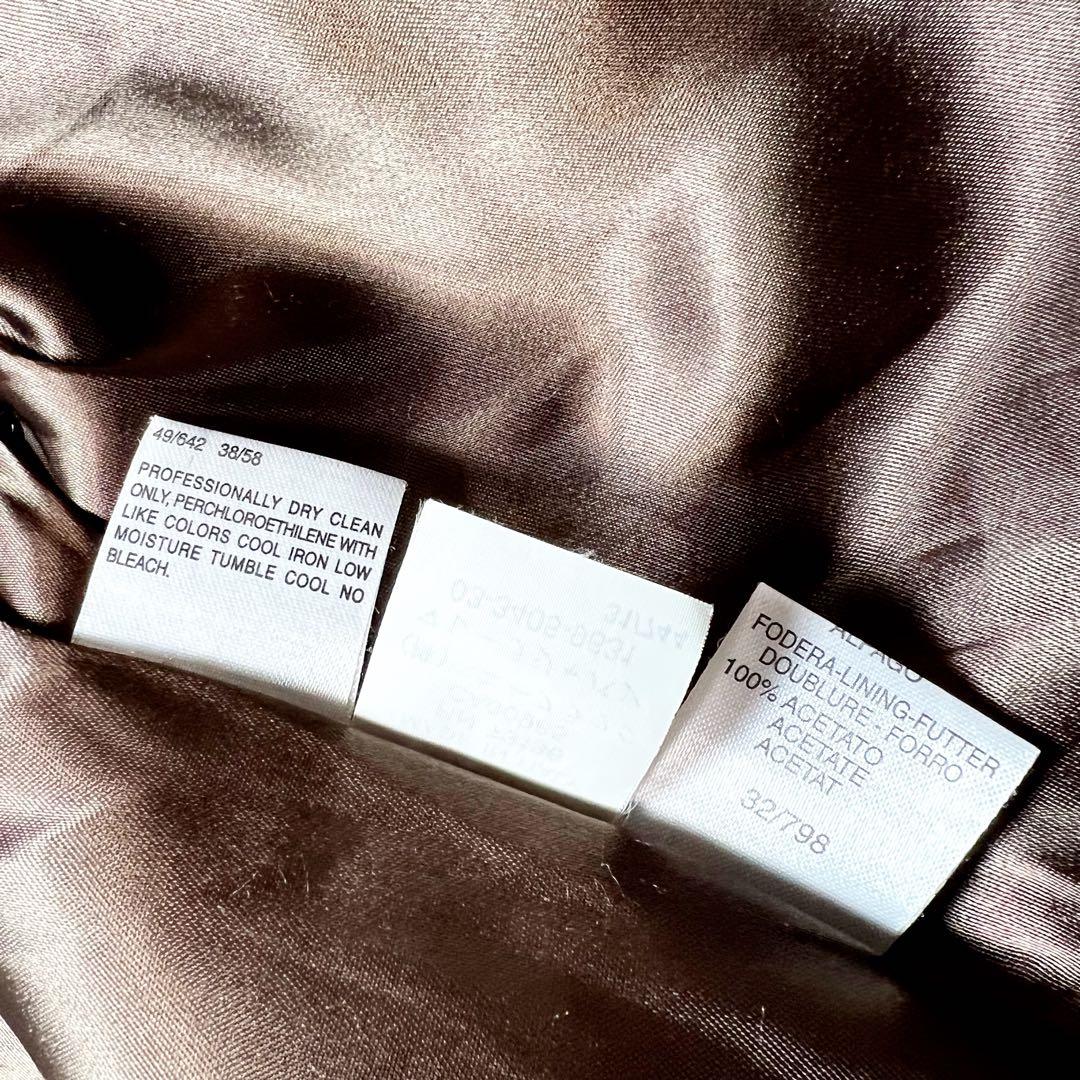 49/642 38/58
PROFESSIONALLY DRY CLEAN
ONLY, PERCHLOROETHILENE WITH
LIKE COLORS COOL IRON LOW
MOISTURE TUMBLE COOL NO
BLEACH.
31/744
03-3405-9631
FODERA-LINING-FUTTER
DOUBLURE-FORRO
100% ACETATO
ACETATE
ACETAT
32/798